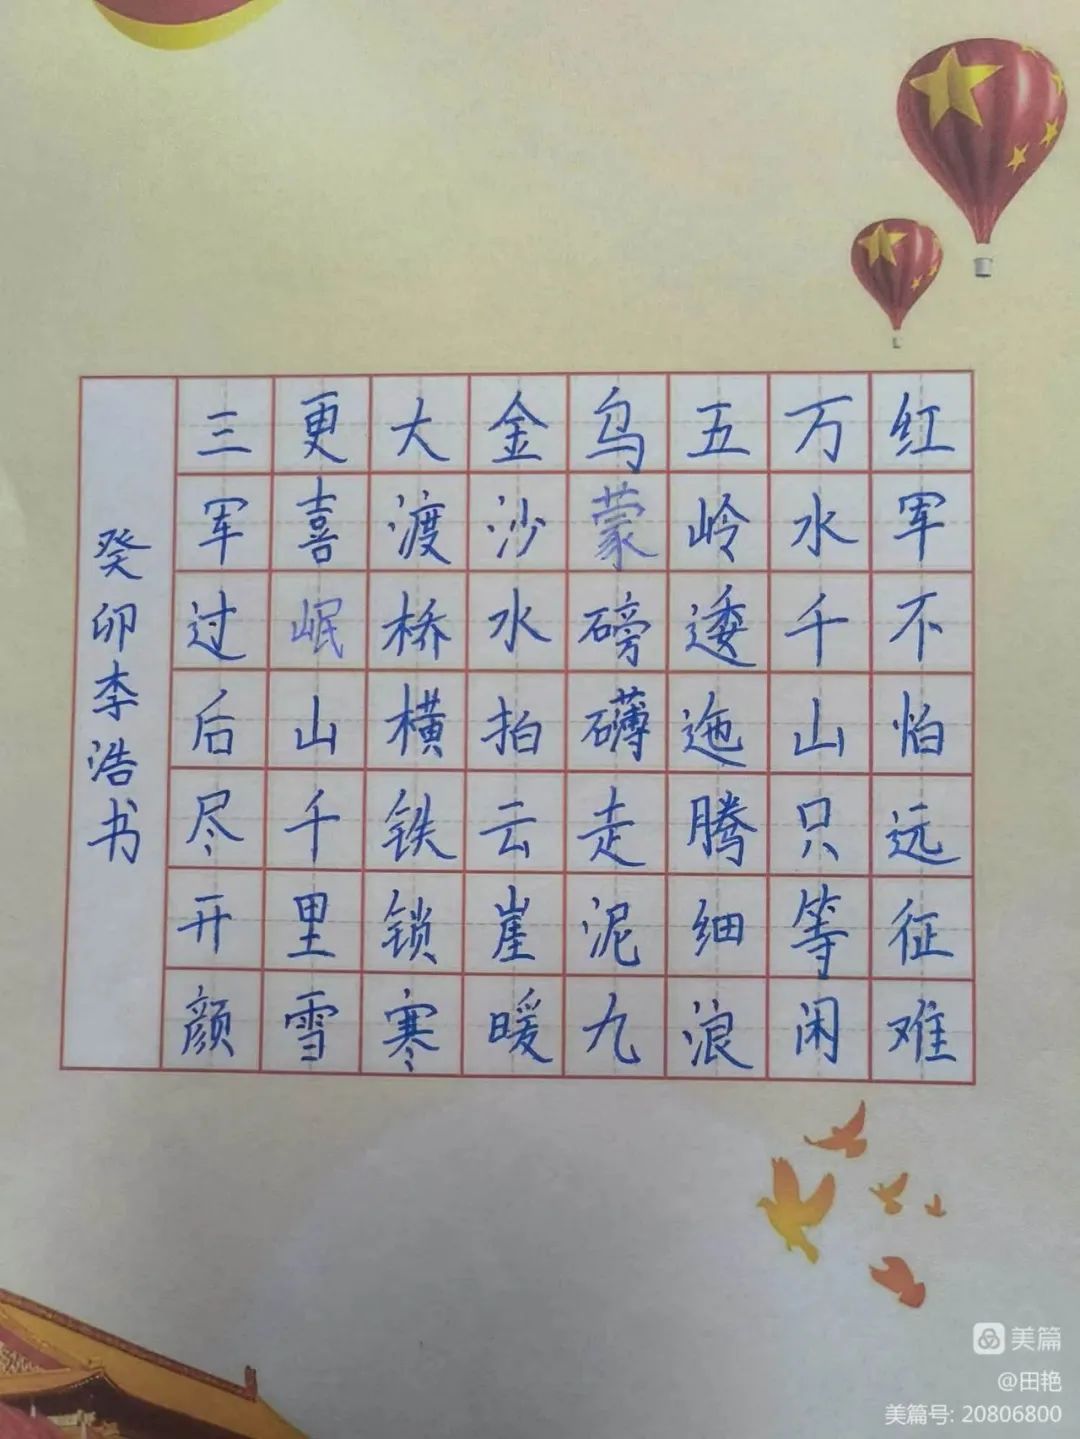 红军不怕远征难
万水千山只等闲
五岭逶迤腾细浪
乌蒙磅礴走泥九
金沙水拍云崖暖
大渡桥横铁锁寒
更喜岷山千里雪
三军过后尽开颜
癸卯李浩书
美篇
@田艳
美篇号: 20806800